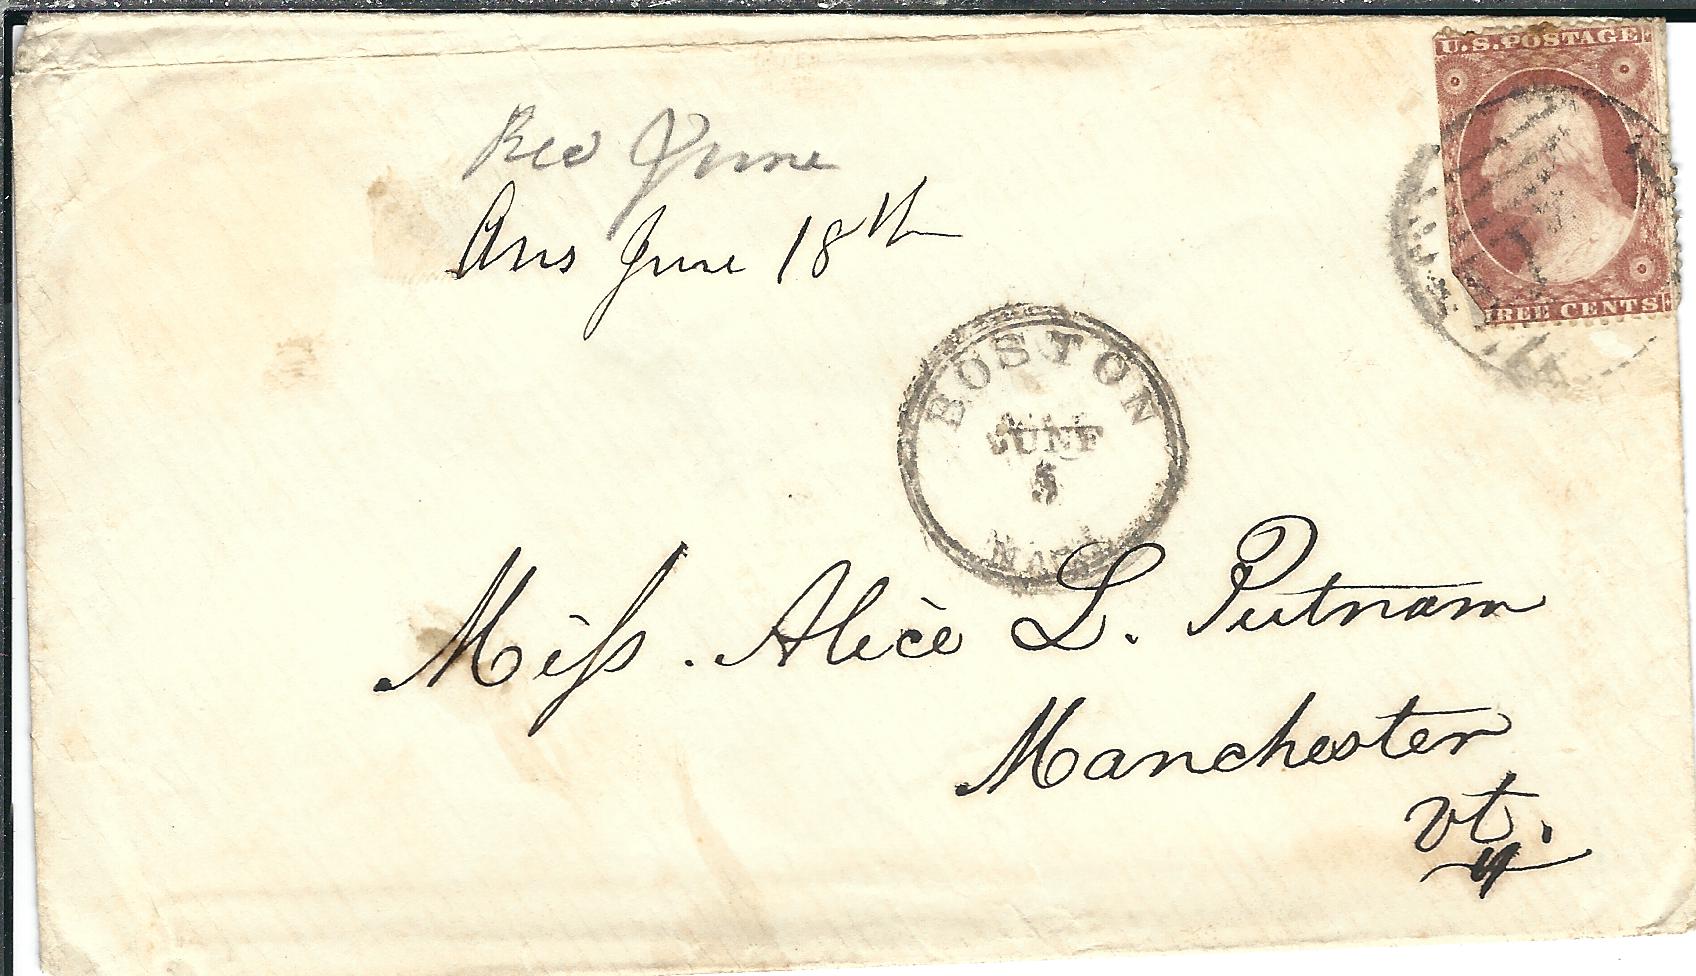 U.S. POSTAGE
THREE CENTS
Rec June
Ans June 18th
BOSTON
JUNE
5
MASS
Miss. Alice L. Putnam
Manchester
Vt.